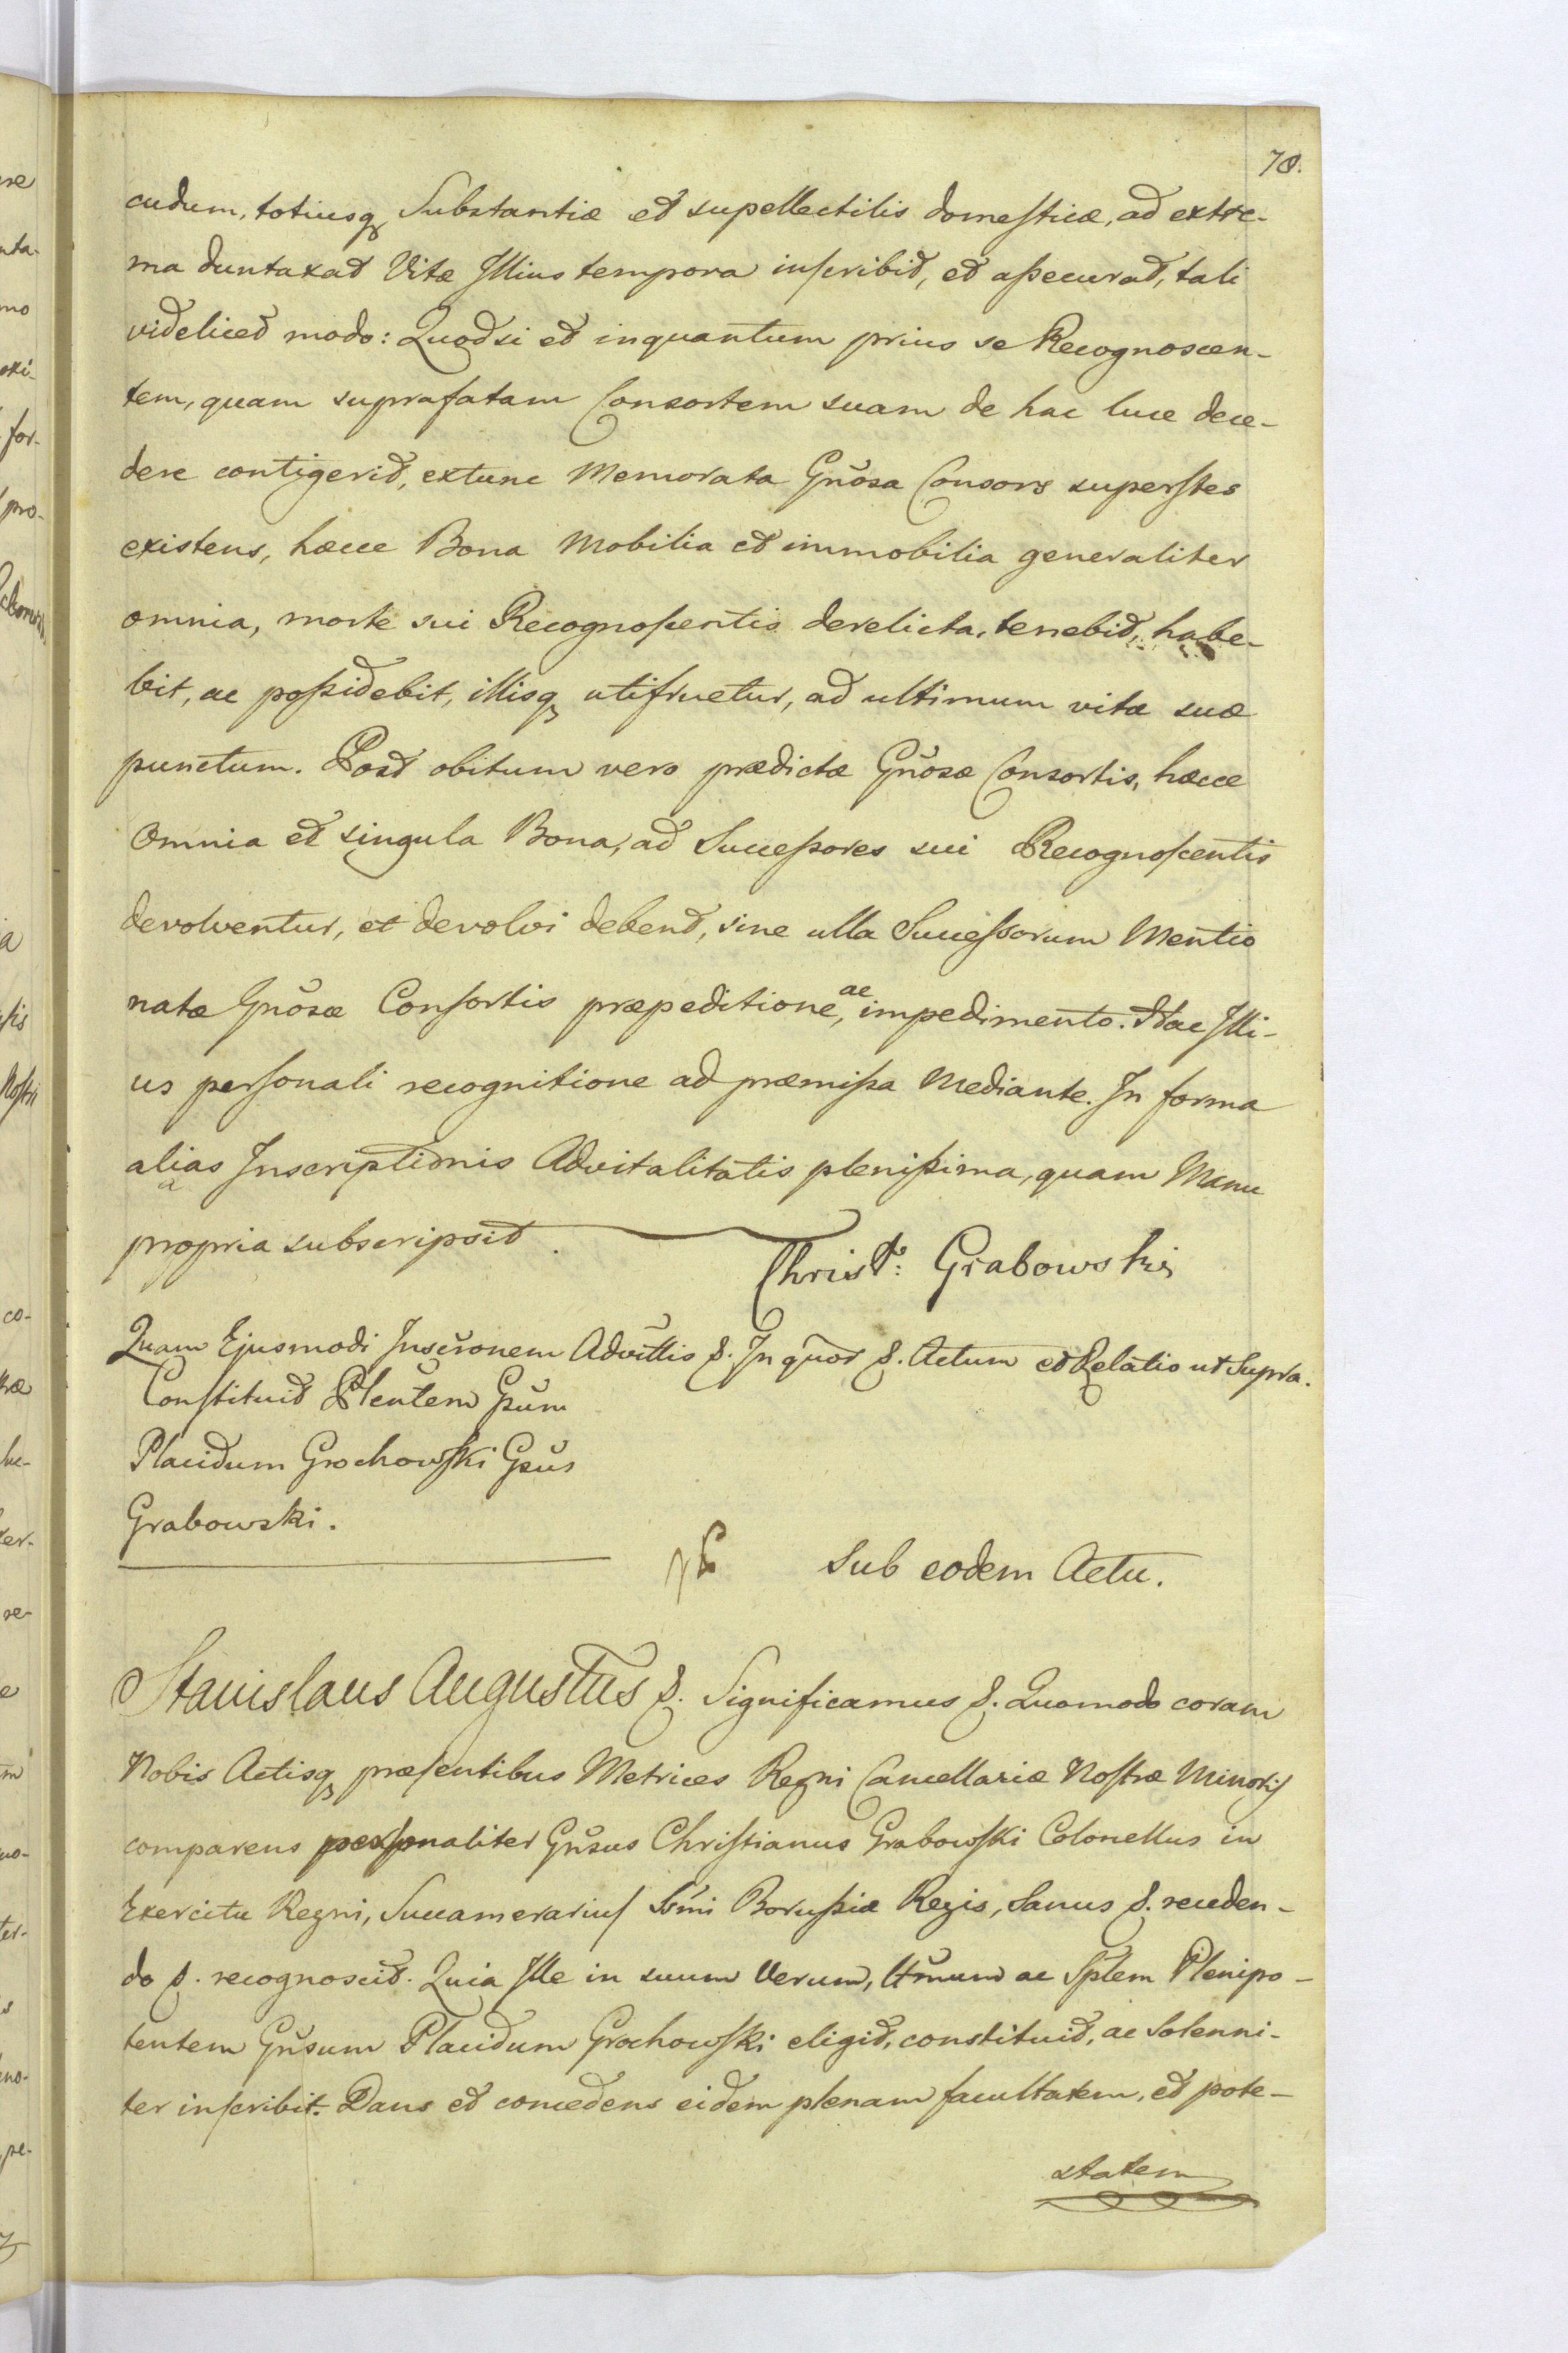 78.
cudum, totiusq, Substantiæ et supellectilis domesticæ, ad extre-
ma duntaxat Vitæ Illius tempora inscribit, et assecurat, tali
videlicet modo: Quodsi et inquantum prius se Recognoscen-
tem, quam suprafatam Consortem suam de hac luce dece-
dere contigerit, extunc Memorata Gñosa Consors superstes
existens, hæcce Bona Mobilia et immobilia generaliter
omnia, morte sui Recognoscentis derelicta, tenebit, habe-
bit, ac possidebit, illisq, utifruetur, ad ultimum vitæ suæ
punctum. Post obitum vero prædictæ Gñosæ Consortis, hæcce
Omnia et singula Bona, ad Successores sui Recognoscentis
devolventur, et devolvi debent, sine ulla Successorum Mentio
natæ Gñosæ Consortis præpeditione, ac impedimento. Hac Illi-
us personali recognitione ad præmissa Mediante. In forma
alias Inscriptionis Advitalitatis plenissima, quam Manu
propria subscripsit.
Christ: Grabowski
Quam Ejusmodi Inscr̃onem Advit̃tis &. In quor̃ &. Actum et Relatio ut Supra.
Constituit Pleñtem Gsũm
Placidum Grochowski Gsũs
Grabowski.
Sub eodem Actu.
Stanislaus Augustus &. Significamus &. Quomodo coram
Nobis Actisq, præsentibus Metrices Regni Cancellariæ Nostræ Minoris
comparens personaliter Gñsus Christianus Grabowski Colonellus in
Exercitu Regni, Succamerarius Sr̃mi Borussiæ Regis, Sanus &. receden-
do &. recognoscit. Quia Ille in suum Verum, Ltĩmum ac Sp̃lem Plenipo-
tentem Gñsum Placidum Grochowski eligit, constituit, ac Solenni-
ter inscribit. Dans et concedens eidem plenam facultatem, et pote-
statem